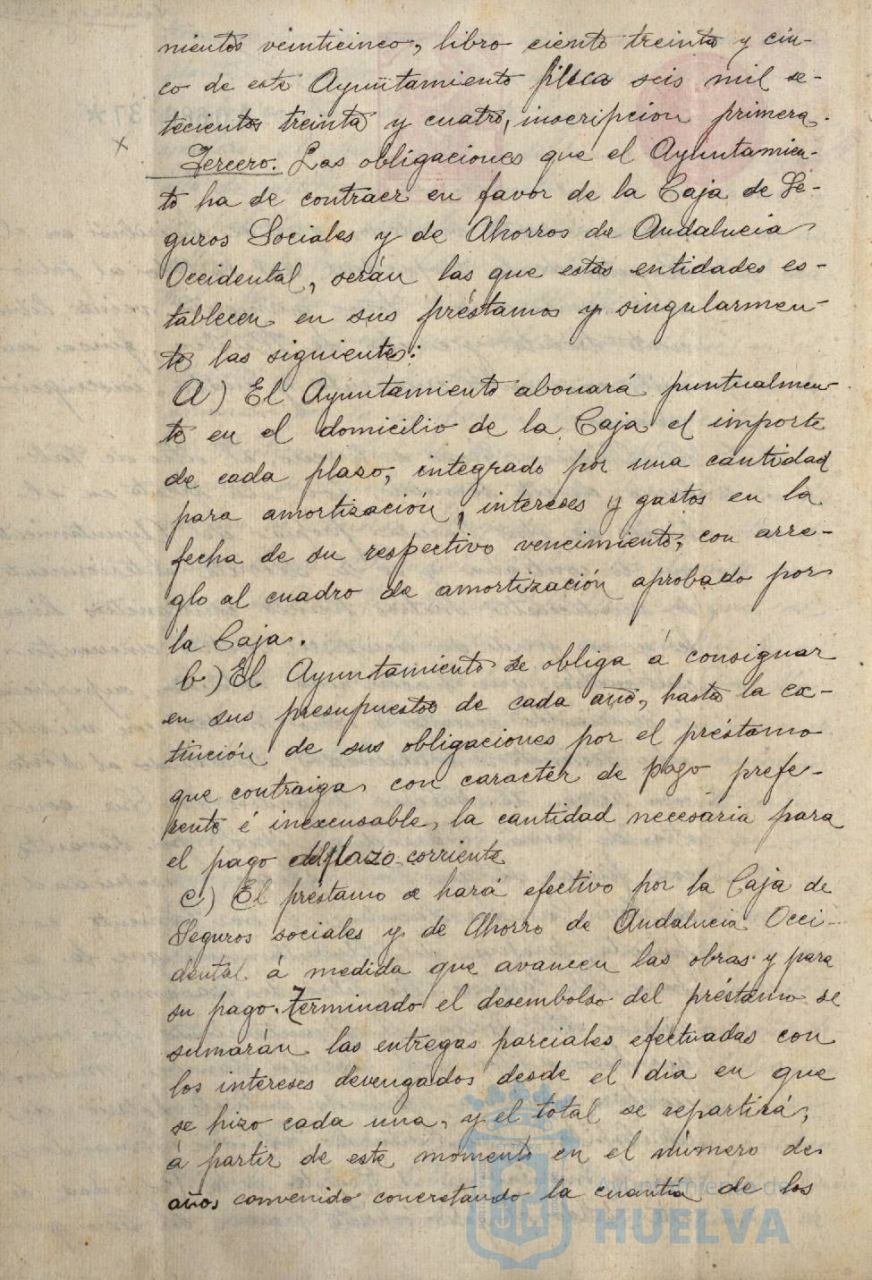 nientos veinticinco, libro ciento treinta y cin-
co de este Ayuntamiento finca seis mil se-
tecientos treinta y cuatro, inscripcion primera.
Tercero. Las obligaciones que el Ayuntamien-
to ha de contraer en favor de la Caja de Se-
guros Sociales y de Ahorros de Andalucia
Occidental, serán las que estas entidades es-
tablecen en sus préstamos y singularmen-
te las siguientes:
A) El Ayuntamiento abonará puntualmen-
te en el domicilio de la Caja el importe
de cada plazo, integrado por una cantidad
para amortización, intereses y gastos en la
fecha de su respectivo vencimiento, con arre-
glo al cuadro de amortización aprobado por
la Caja.
b) El Ayuntamiento se obliga á consignar
en sus presupuestos de cada año, hasta la ex-
tinción de sus obligaciones por el préstamo
que contraiga con caracter de pago prefe-
rente é inexcusable, la cantidad necesária para
el pago del plazo corriente
c) El préstamo se hará efectivo por la Caja de
Seguros sociales y de Ahorro de Andalucia Occi-
dental á medida que avancen las obras y para
su pago. Terminado el desembolso del préstamo se
sumarán las entregas parciales efectuadas con
los intereses devengados desde el dia en que
se hizo cada una, y el total se repartirá,
á partir de este momento en el número de
años convenido concretando la cuantía de los
Ayuntamiento de
HUELVA